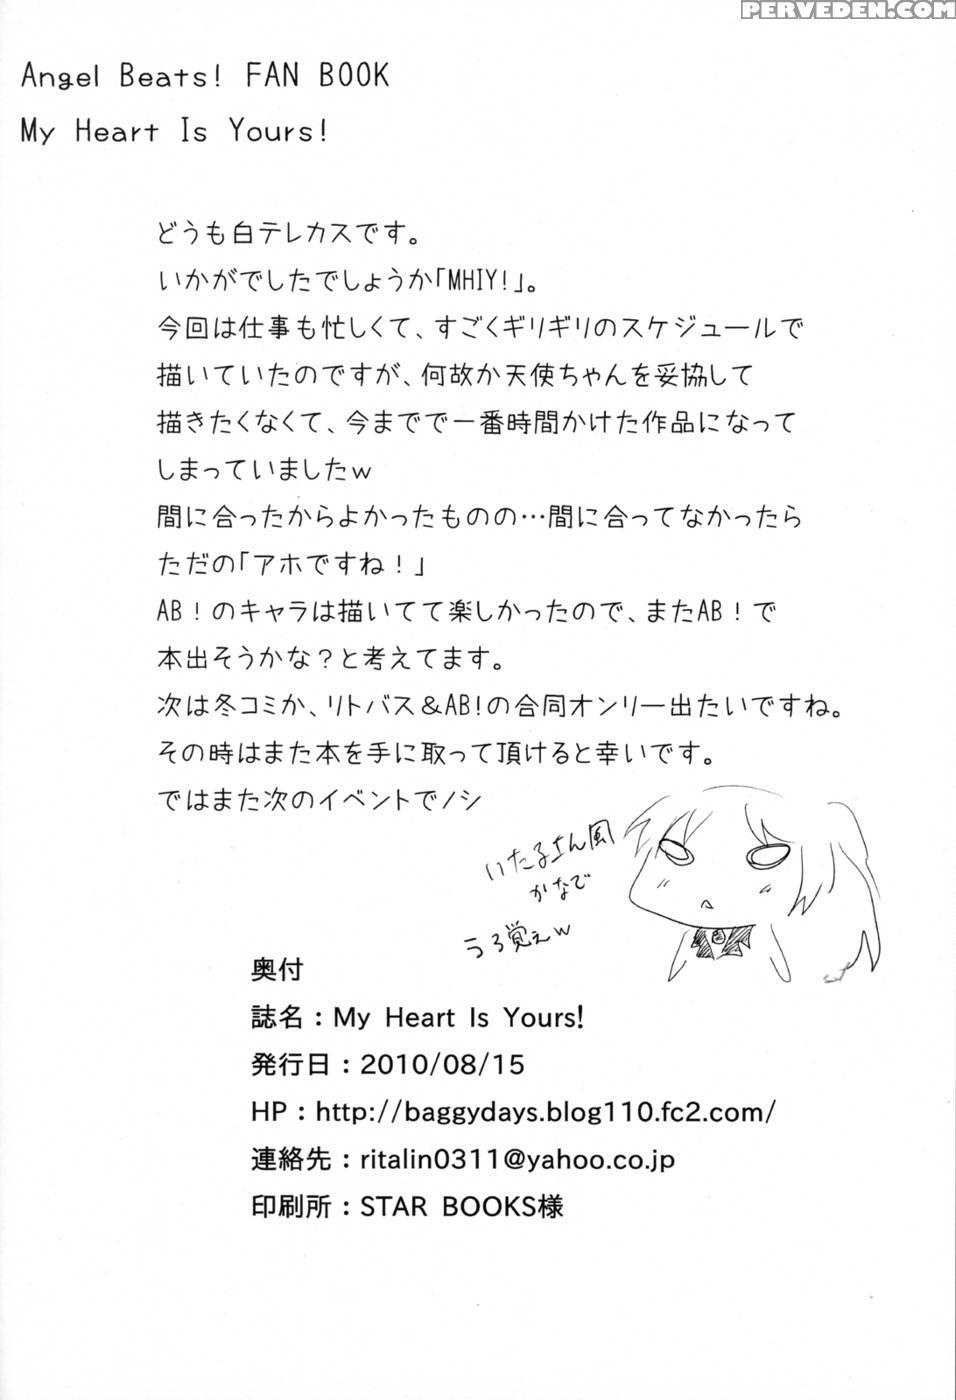 PERVEDEN.COM
Angel Beats! FAN BOOK
My Heart Is Yours!
どうも白テレカスです。
いかがでしたでしょうか「MHIY!」。
今回は仕事も忙しくて、すごくギリギリのスケジュールで
描いていたのですが、何故か天使ちゃんを妥協して
描きたくなくて、今までで一番時間かけた作品になって
しまっていましたw
間に合ったからよかったものの…間に合ってなかったら
ただの「アホですね！」
AB！のキャラは描いてて楽しかったので、またAB！で
本出そうかな？と考えてます。
次は冬コミか、リトバス＆AB!の合同オンリー出たいですね。
その時はまた本を手に取って頂けると幸いです。
ではまた次のイベントでノシ
いたるさん風
かなで
うろ覚えw
奥付
誌名：My Heart Is Yours!
発行日：2010/08/15
HP：http://baggydays.blog110.fc2.com/
連絡先：ritalin0311@yahoo.co.jp
印刷所：STAR BOOKS様